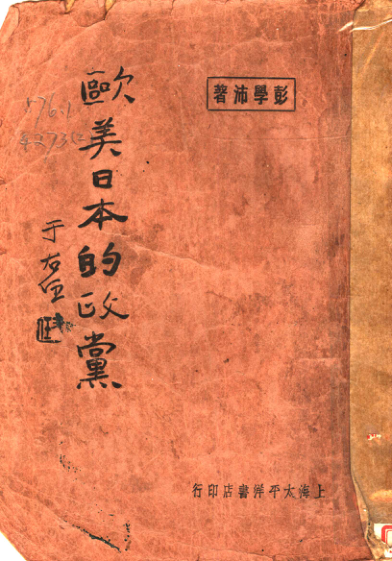 彭學沛著
歐美日本的政黨
于右任
上海太平洋書店印行